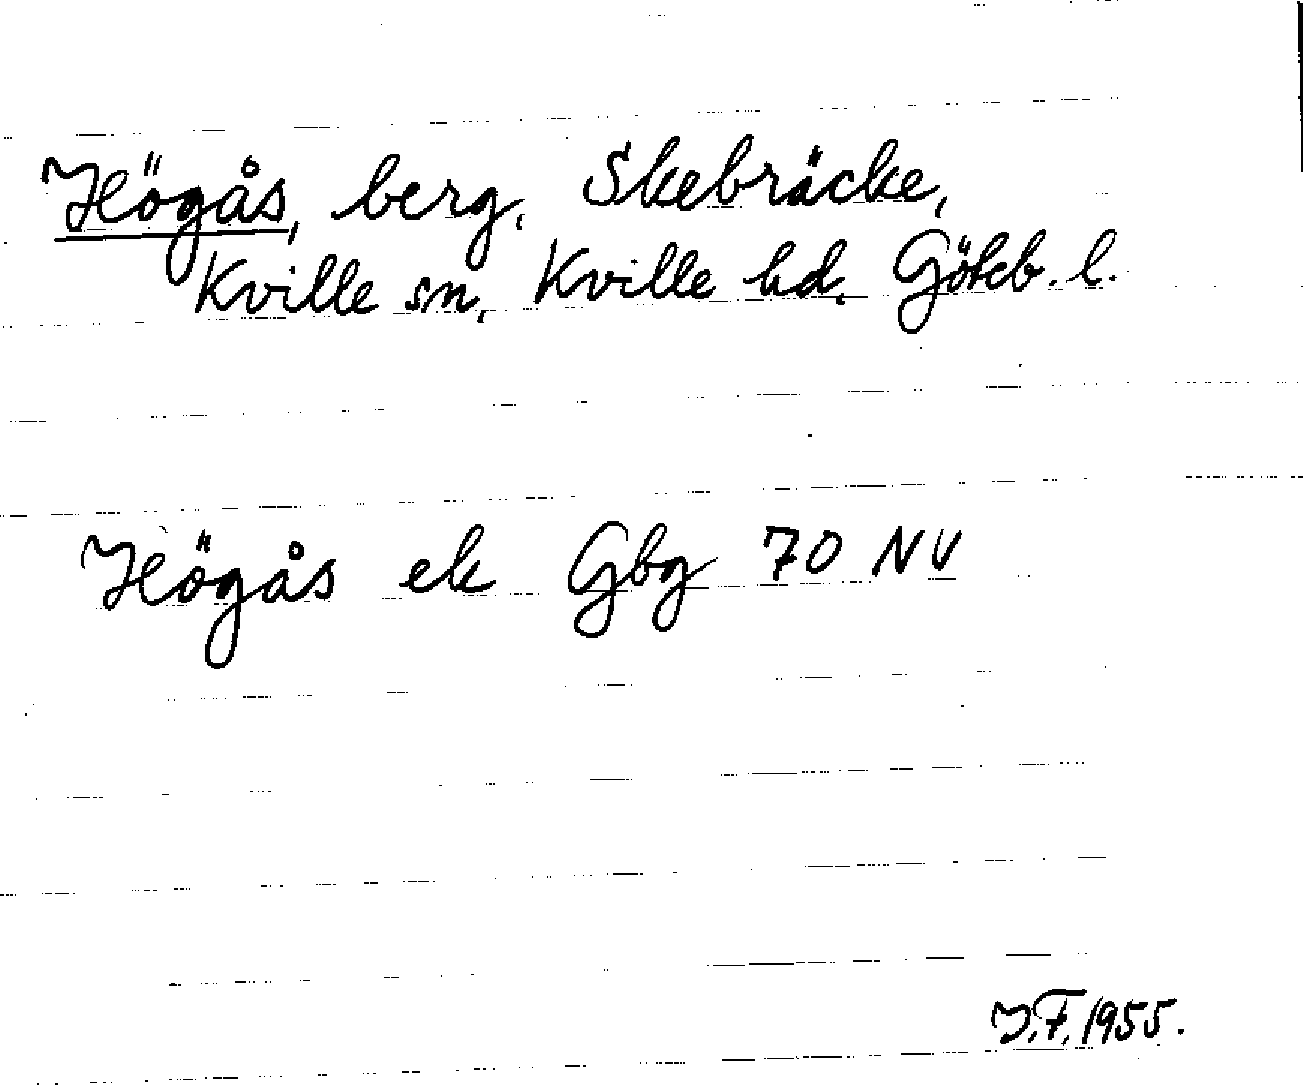 Högås, berg, Skebräcke,
Kville sn, Kville hd, Göteb. l.
Högås ek Gbg 70 NV
J.F. 1955.